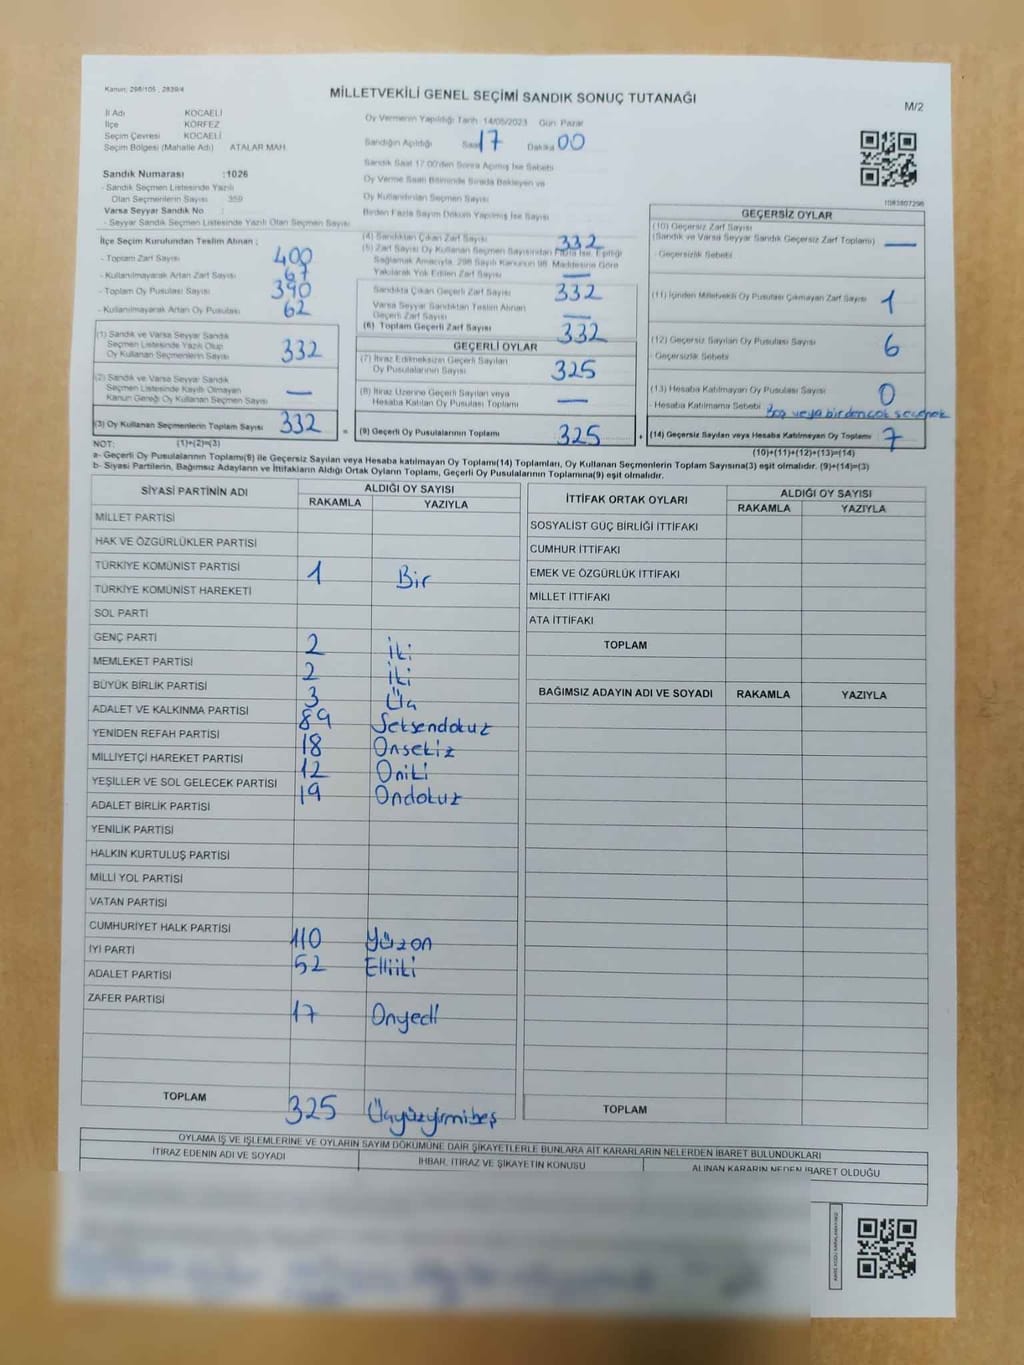 Kanun: 298/105 , 2839/4
MİLLETVEKİLİ GENEL SEÇİMİ SANDIK SONUÇ TUTANAĞI
M/2
İl Adı KOCAELİ
İlçe KÖRFEZ
Seçim Çevresi KOCAELİ
Seçim Bölgesi (Mahalle Adı) ATALAR MAH.
Oy Vermenin Yapıldığı Tarih 14/05/2023 Gün: Pazar
Sandığın Açıldığı Saat 17 Dakika 00
Sandık Saat 17:00'den Sonra Açılmış İse Sebebi
Oy Verme Saati Bitiminde Sırada Bekleyen ve
Oy Kullandırılan Seçmen Sayısı
Birden Fazla Sayım Döküm Yapılmış İse Sayısı
Sandık Numarası :1026
- Sandık Seçmen Listesinde Yazılı
Olan Seçmenlerin Sayısı 359
Varsa Seyyar Sandık No :
- Seyyar Sandık Seçmen Listesinde Yazılı Olan Seçmen Sayısı
İlçe Seçim Kurulundan Teslim Alınan ;
- Toplam Zarf Sayısı 400
- Kullanılmayarak Artan Zarf Sayısı 67
- Toplam Oy Pusulası Sayısı 390
- Kullanılmayarak Artan Oy Pusulası 62
(1) Sandık ve Varsa Seyyar Sandık
Seçmen Listesinde Yazılı Olup
Oy Kullanan Seçmenlerin Sayısı 332
(2) Sandık ve Varsa Seyyar Sandık
Seçmen Listesinde Kayıtlı Olmayan
Kanun Gereği Oy Kullanan Seçmen Sayısı —
(3) Oy Kullanan Seçmenlerin Toplam Sayısı 332 =
(4) Sandıktan Çıkan Zarf Sayısı 332
(5) Zarf Sayısı Oy Kullanan Seçmen Sayısından Fazla İse, Eşitliği
Sağlamak Amacıyla, 298 Sayılı Kanunun 98. Maddesine Göre
Yakılarak Yok Edilen Zarf Sayısı —
Sandıkta Çıkan Geçerli Zarf Sayısı 332
Varsa Seyyar Sandıktan Teslim Alınan
Geçerli Zarf Sayısı —
(6) Toplam Geçerli Zarf Sayısı 332
GEÇERLİ OYLAR
(7) İtiraz Edilmeksizin Geçerli Sayılan
Oy Pusulalarının Sayısı 325
(8) İtiraz Üzerine Geçerli Sayılan veya
Hesaba Katılan Oy Pusulası Toplamı —
(9) Geçerli Oy Pusulalarının Toplamı 325 +
1083807298
GEÇERSİZ OYLAR
(10) Geçersiz Zarf Sayısı
(Sandık ve Varsa Seyyar Sandık Geçersiz Zarf Toplamı) —
- Geçersizlik Sebebi
(11) İçinden Milletvekili Oy Pusulası Çıkmayan Zarf Sayısı 1
(12) Geçersiz Sayılan Oy Pusulası Sayısı 6
- Geçersizlik Sebebi
(13) Hesaba Katılmayan Oy Pusulası Sayısı 0
- Hesaba Katılmama Sebebi Boş veya birden çok seçenek
(14) Geçersiz Sayılan veya Hesaba Katılmayan Oy Toplamı 7
NOT: (1)+(2)=(3) (10)+(11)+(12)+(13)=(14)
a- Geçerli Oy Pusulalarının Toplamı(9) ile Geçersiz Sayılan veya Hesaba katılmayan Oy Toplamı(14) Toplamları, Oy Kullanan Seçmenlerin Toplam Sayısına(3) eşit olmalıdır. (9)+(14)=(3)
b- Siyasi Partilerin, Bağımsız Adayların ve İttifakların Aldığı Ortak Oyların Toplamı, Geçerli Oy Pusulalarının Toplamına(9) eşit olmalıdır.
SİYASİ PARTİNİN ADI ALDIĞI OY SAYISI
RAKAMLA YAZIYLA
MİLLET PARTİSİ
HAK VE ÖZGÜRLÜKLER PARTİSİ
TÜRKİYE KOMÜNİST PARTİSİ 1 Bir
TÜRKİYE KOMÜNİST HAREKETİ
SOL PARTİ
GENÇ PARTİ 2 İki
MEMLEKET PARTİSİ 2 İki
BÜYÜK BİRLİK PARTİSİ 3 Üç
ADALET VE KALKINMA PARTİSİ 89 Seksendokuz
YENİDEN REFAH PARTİSİ 18 Onsekiz
MİLLİYETÇİ HAREKET PARTİSİ 12 Oniki
YEŞİLLER VE SOL GELECEK PARTİSİ 19 Ondokuz
ADALET BİRLİK PARTİSİ
YENİLİK PARTİSİ
HALKIN KURTULUŞ PARTİSİ
MİLLİ YOL PARTİSİ
VATAN PARTİSİ
CUMHURİYET HALK PARTİSİ 110 Yüzon
İYİ PARTİ 52 Elliiki
ADALET PARTİSİ
ZAFER PARTİSİ 17 Onyedi
TOPLAM 325 Üçyüzyirmibeş
İTTİFAK ORTAK OYLARI ALDIĞI OY SAYISI
RAKAMLA YAZIYLA
SOSYALİST GÜÇ BİRLİĞİ İTTİFAKI
CUMHUR İTTİFAKI
EMEK VE ÖZGÜRLÜK İTTİFAKI
MİLLET İTTİFAKI
ATA İTTİFAKI
TOPLAM
BAĞIMSIZ ADAYIN ADI VE SOYADI RAKAMLA YAZIYLA
TOPLAM
OYLAMA İŞ VE İŞLEMLERİNE VE OYLARIN SAYIM DÖKÜMÜNE DAİR ŞİKAYETLERLE BUNLARA AİT KARARLARIN NELERDEN İBARET BULUNDUKLARI
İTİRAZ EDENİN ADI VE SOYADI İHBAR, İTİRAZ VE ŞİKAYETİN KONUSU ALINAN KARARIN NEDEN İBARET OLDUĞU